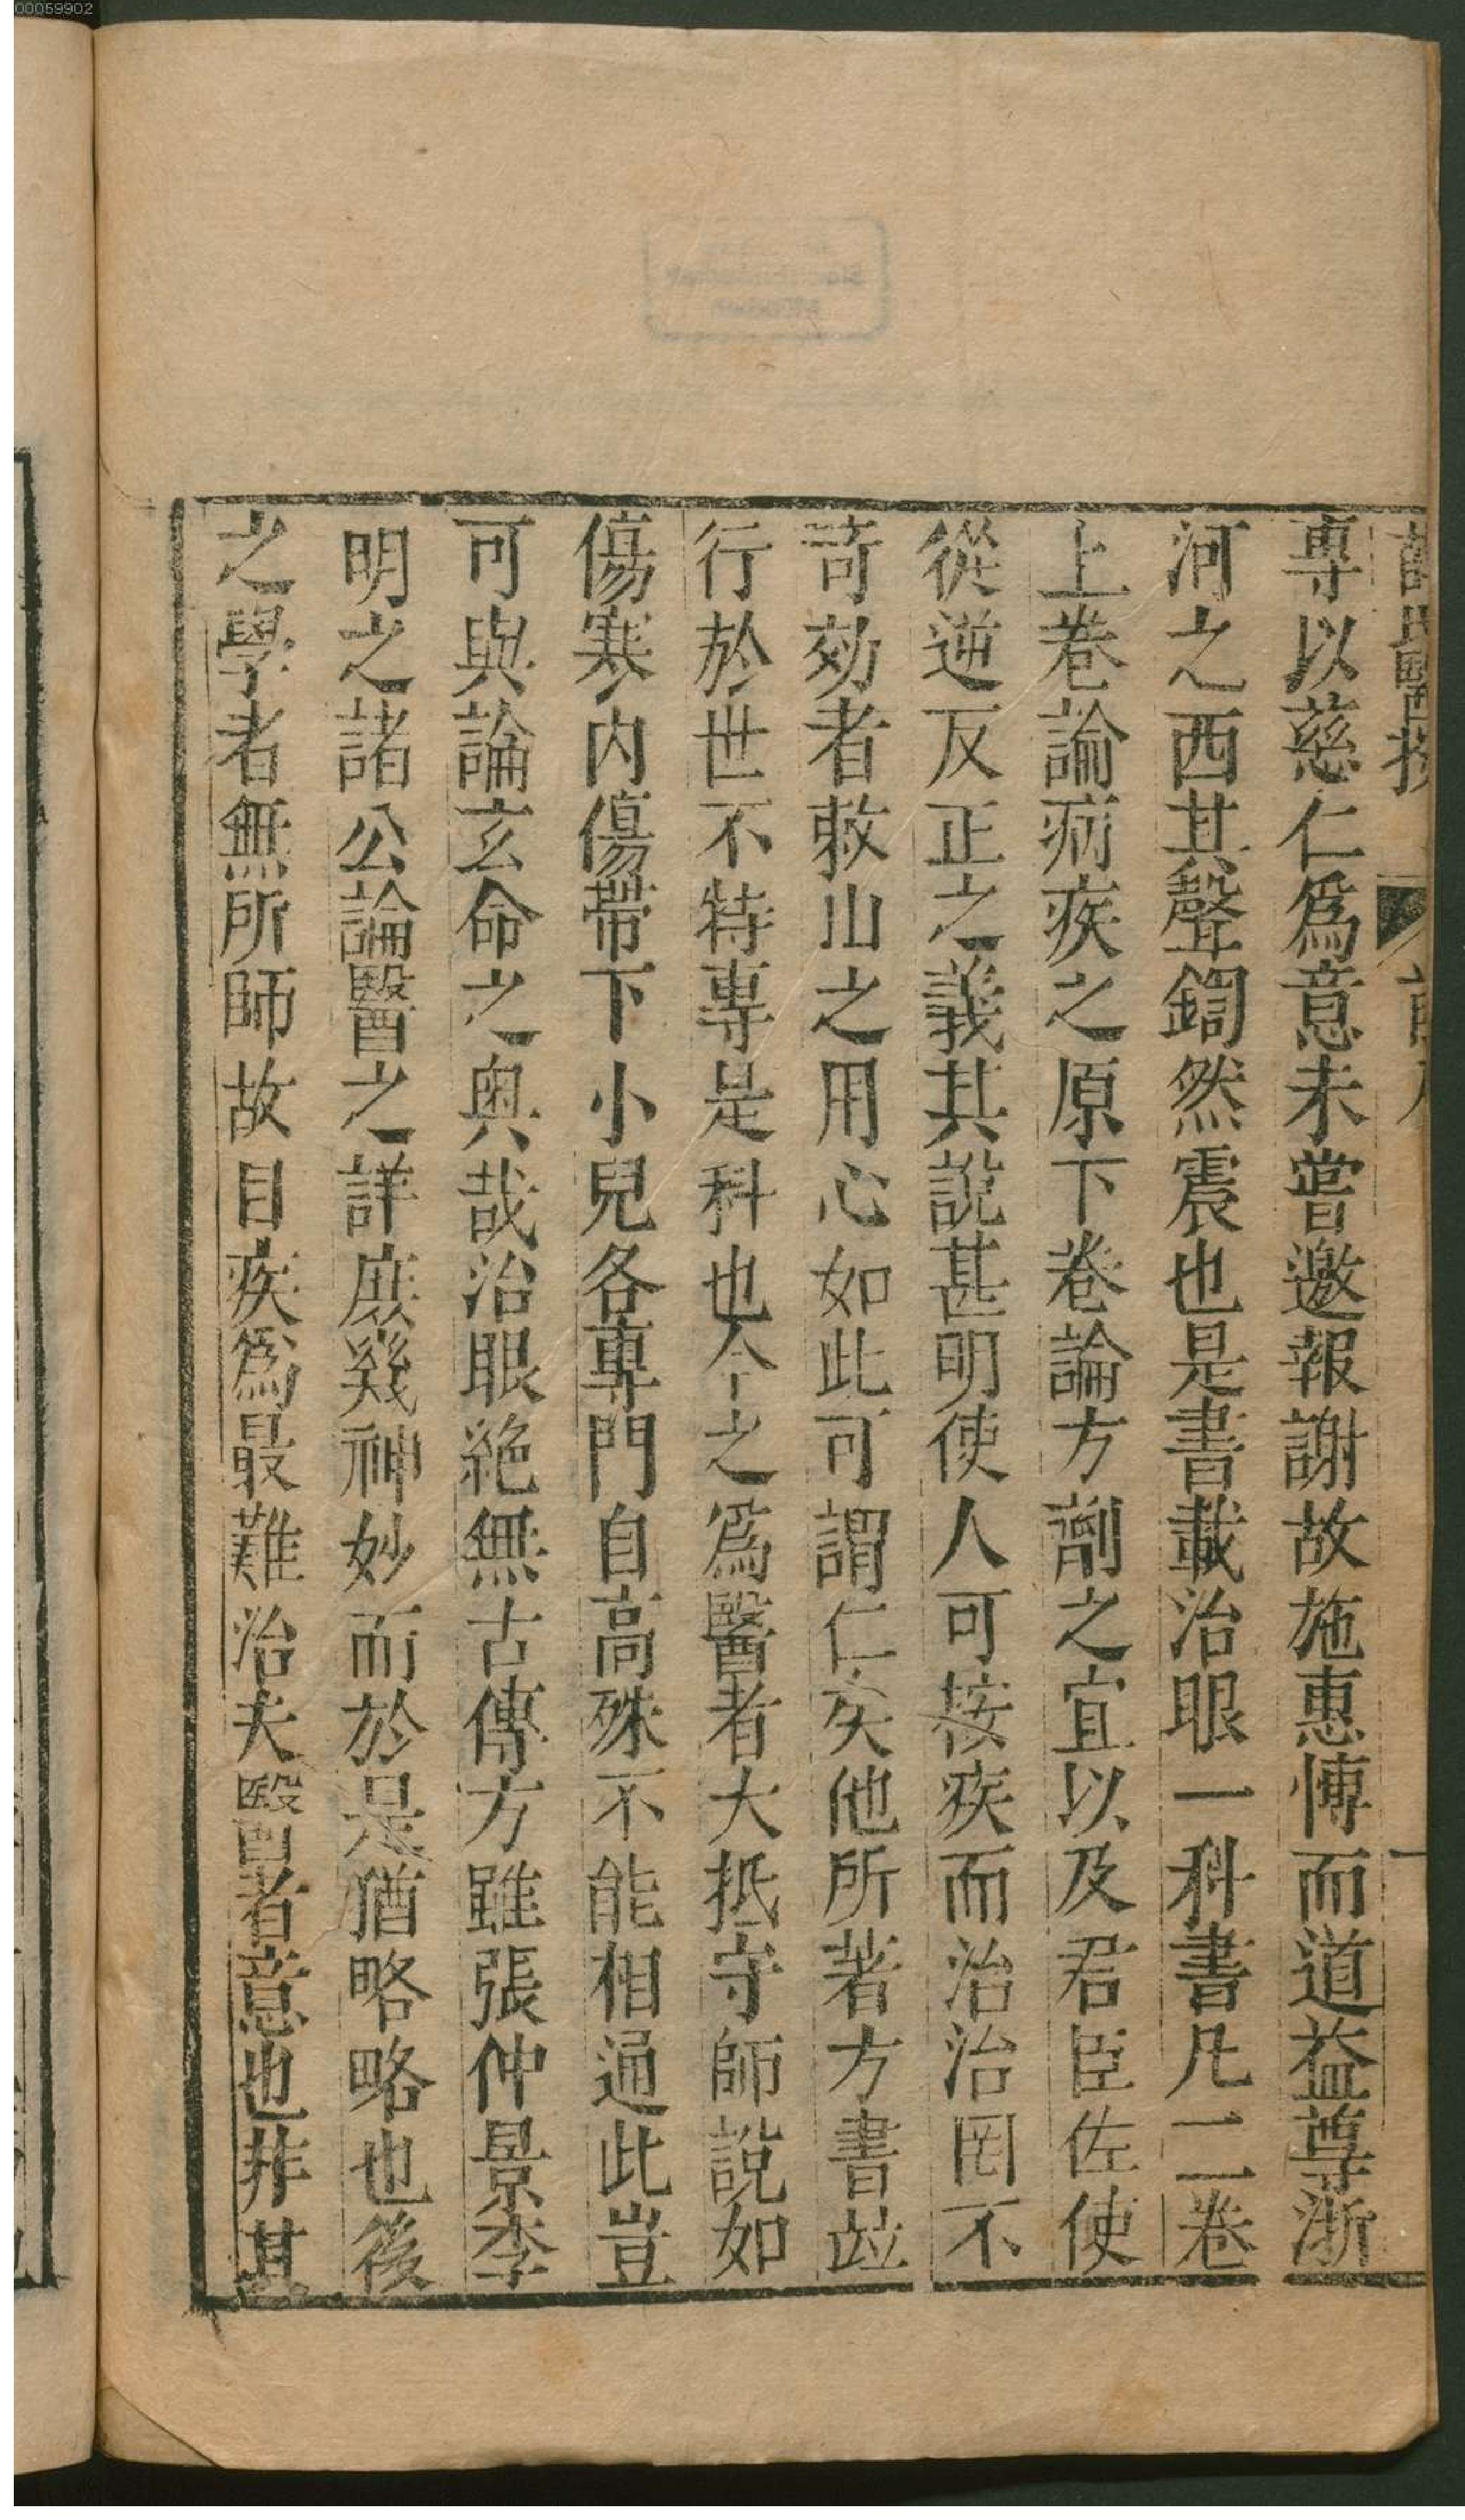 00059902
專以慈仁爲意未嘗邀報謝故施惠慱而道益尊浙
河之西其聲鍧然震也是書載治眼一科書凡二卷
上卷論病疾之原下卷論方劑之宜以及君臣佐使
從逆反正之義其說甚明使人可按疾而治治罔不
苛効者敕山之用心如此可謂仁矣他所著方書並
行於世不特專是科也今之爲醫者大抵守師說如
傷寒內傷帶下小兒各專門自高殊不能相通此豈
可與論玄命之奧哉治眼絶無古傳方雖張仲景李
明之諸公論醫之詳庶幾神妙而於是猶略略也後
之學者無所師故目疾爲最難治夫醫者意也非其